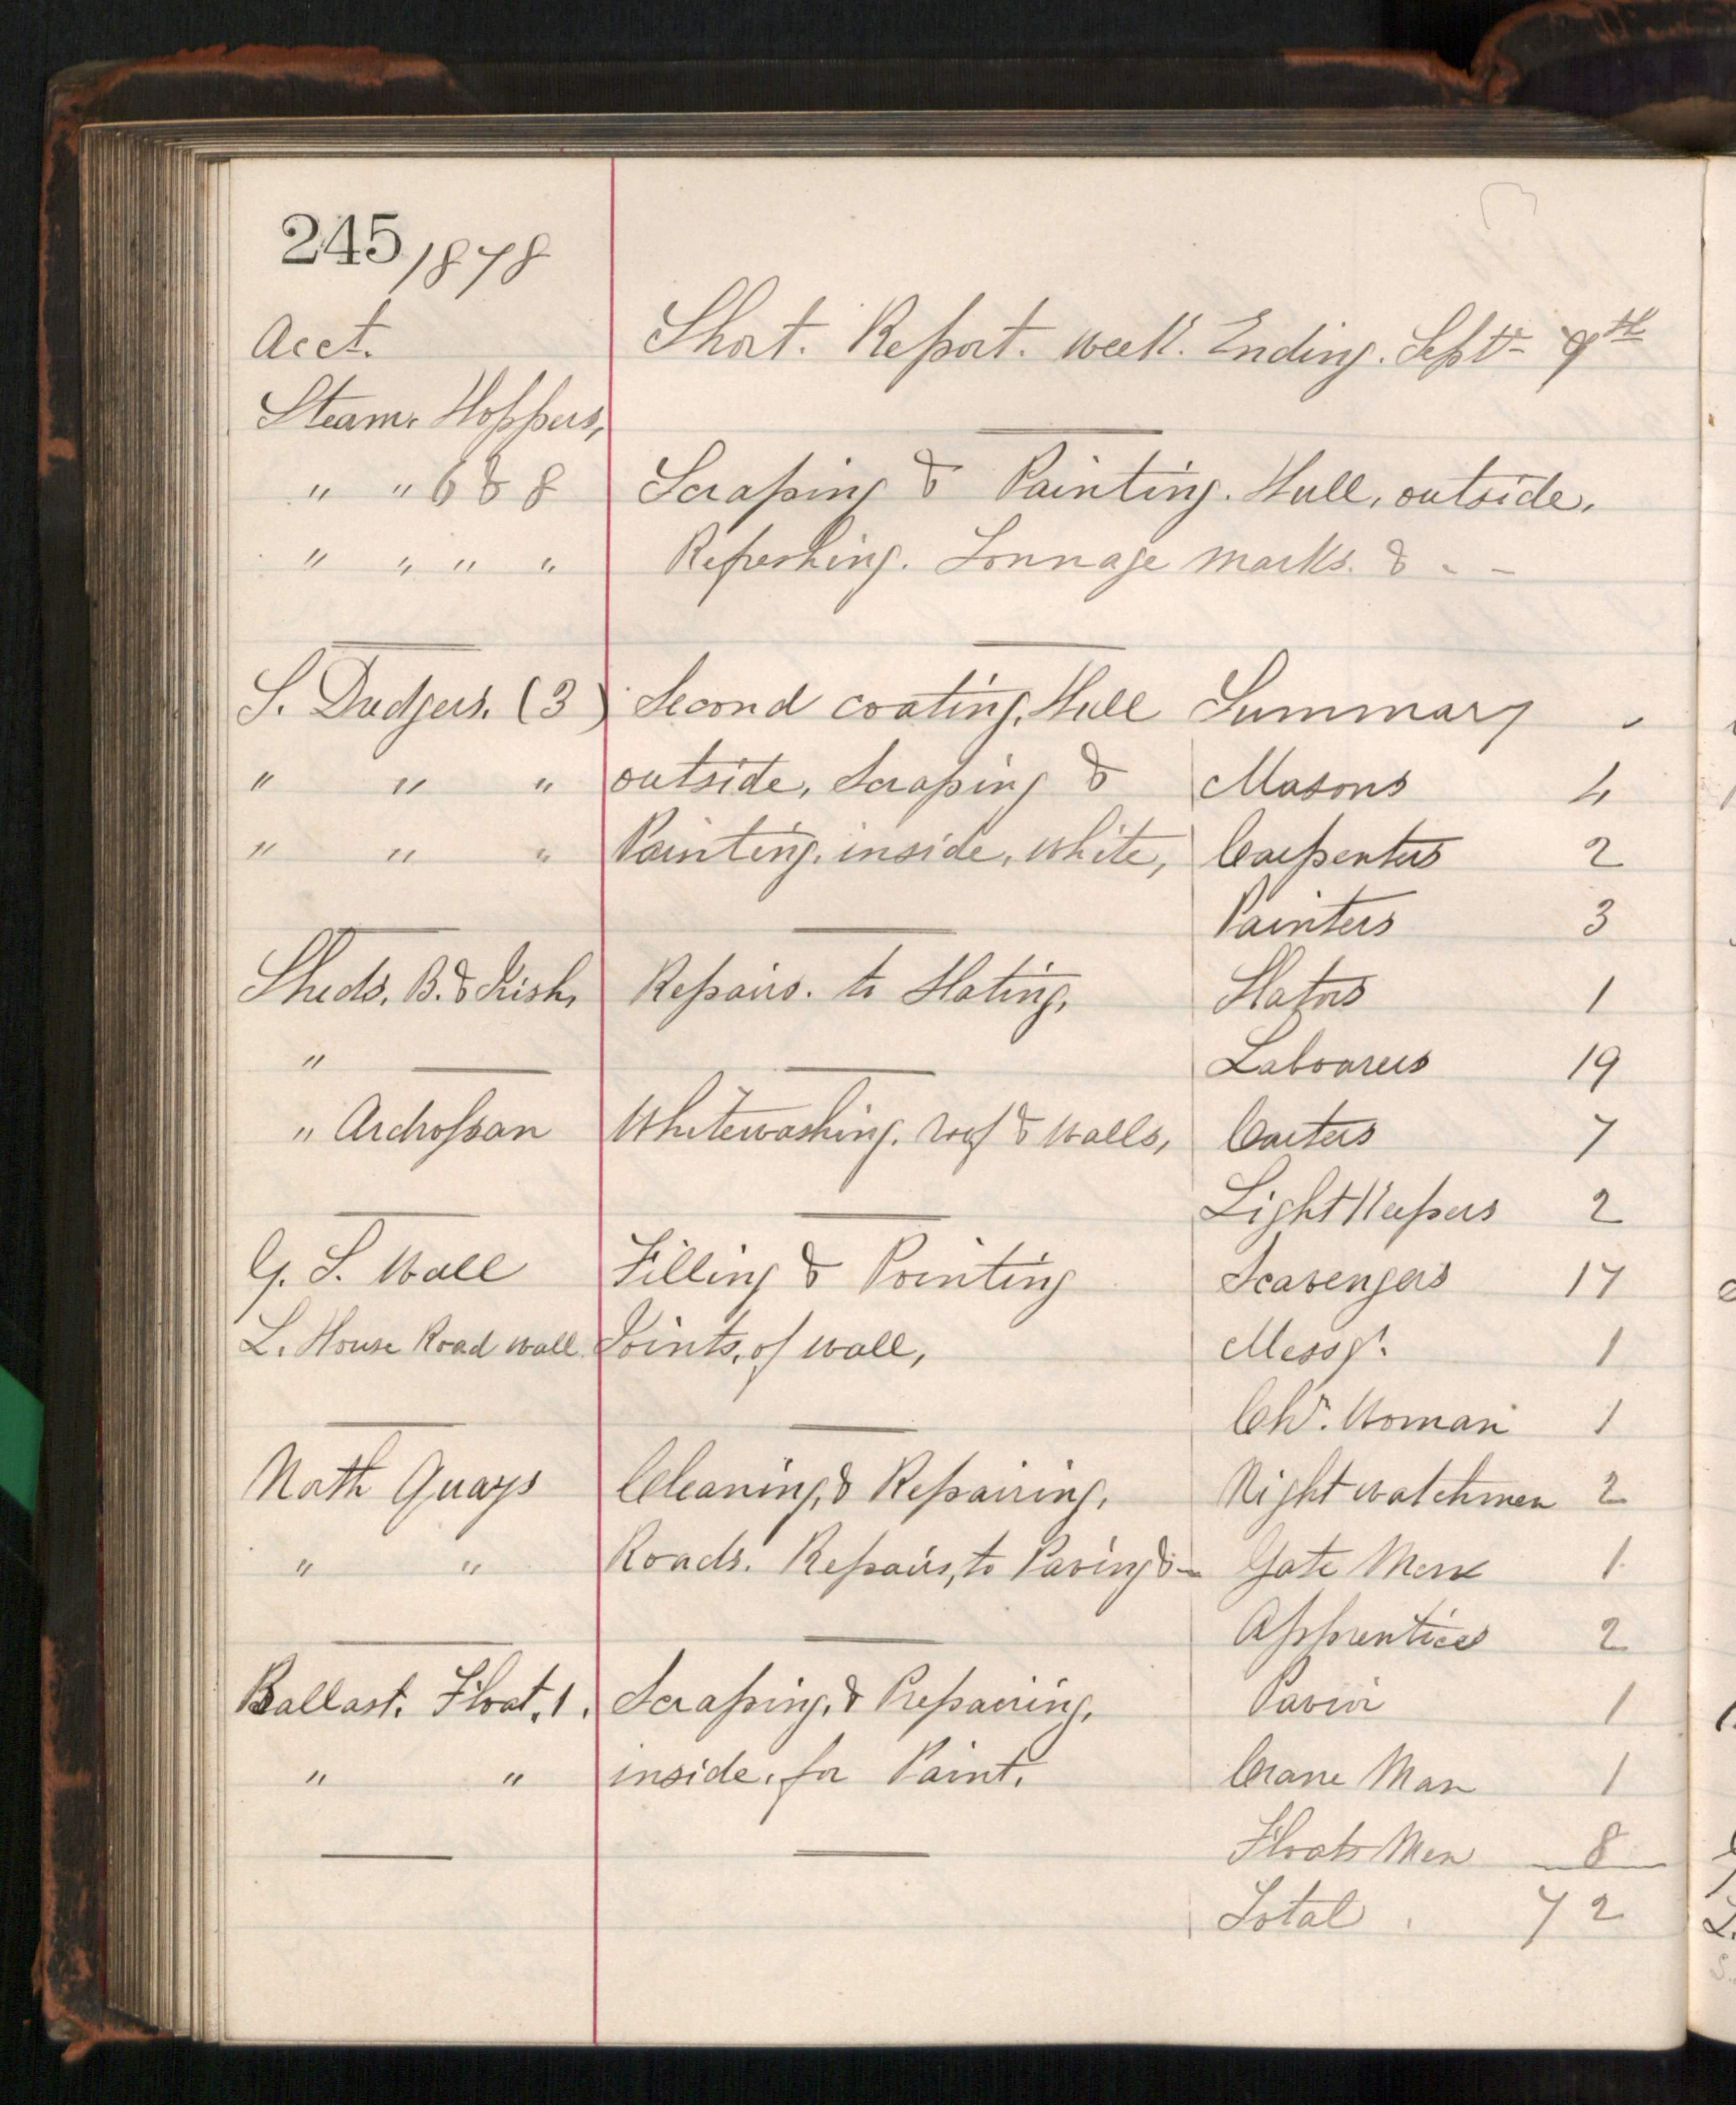 245/1878
Acct. Short. Report. week. Ending. Septr 7th
Steam. Hoppers,
" " 6 & 8 Scraping & Painting. Hull, outside,
" " " " Refreshing. Tonnage Marks. & - -
S. Dredgers. (3) Second coating, Hull Summary
" " " outside, Scraping & Masons 4
" " " Painting. inside, white, Carpenters 2
Painters 3
Sheds. B. & Irish, Repairs. to Slating, Slaters 1
" Labourers 19
" Ardrossan Whitewashing. roof & walls, Carters 7
Light Keepers 2
G. S. Wall Filling & Pointing Scavengers 17
L. House Road wall Joints, of wall, Messgr. 1
Chr. Woman 1
North Quays Cleaning, & Repairing, Night watchmen 2
" " Roads. Repairs, to Paving &- Gate Men 1
Apprentices 2
Ballast. Float, 1. Scraping, & Preparing, Pavior 1
" " inside, for Paint. Crane Man 1
Floats Men 8
Total 72